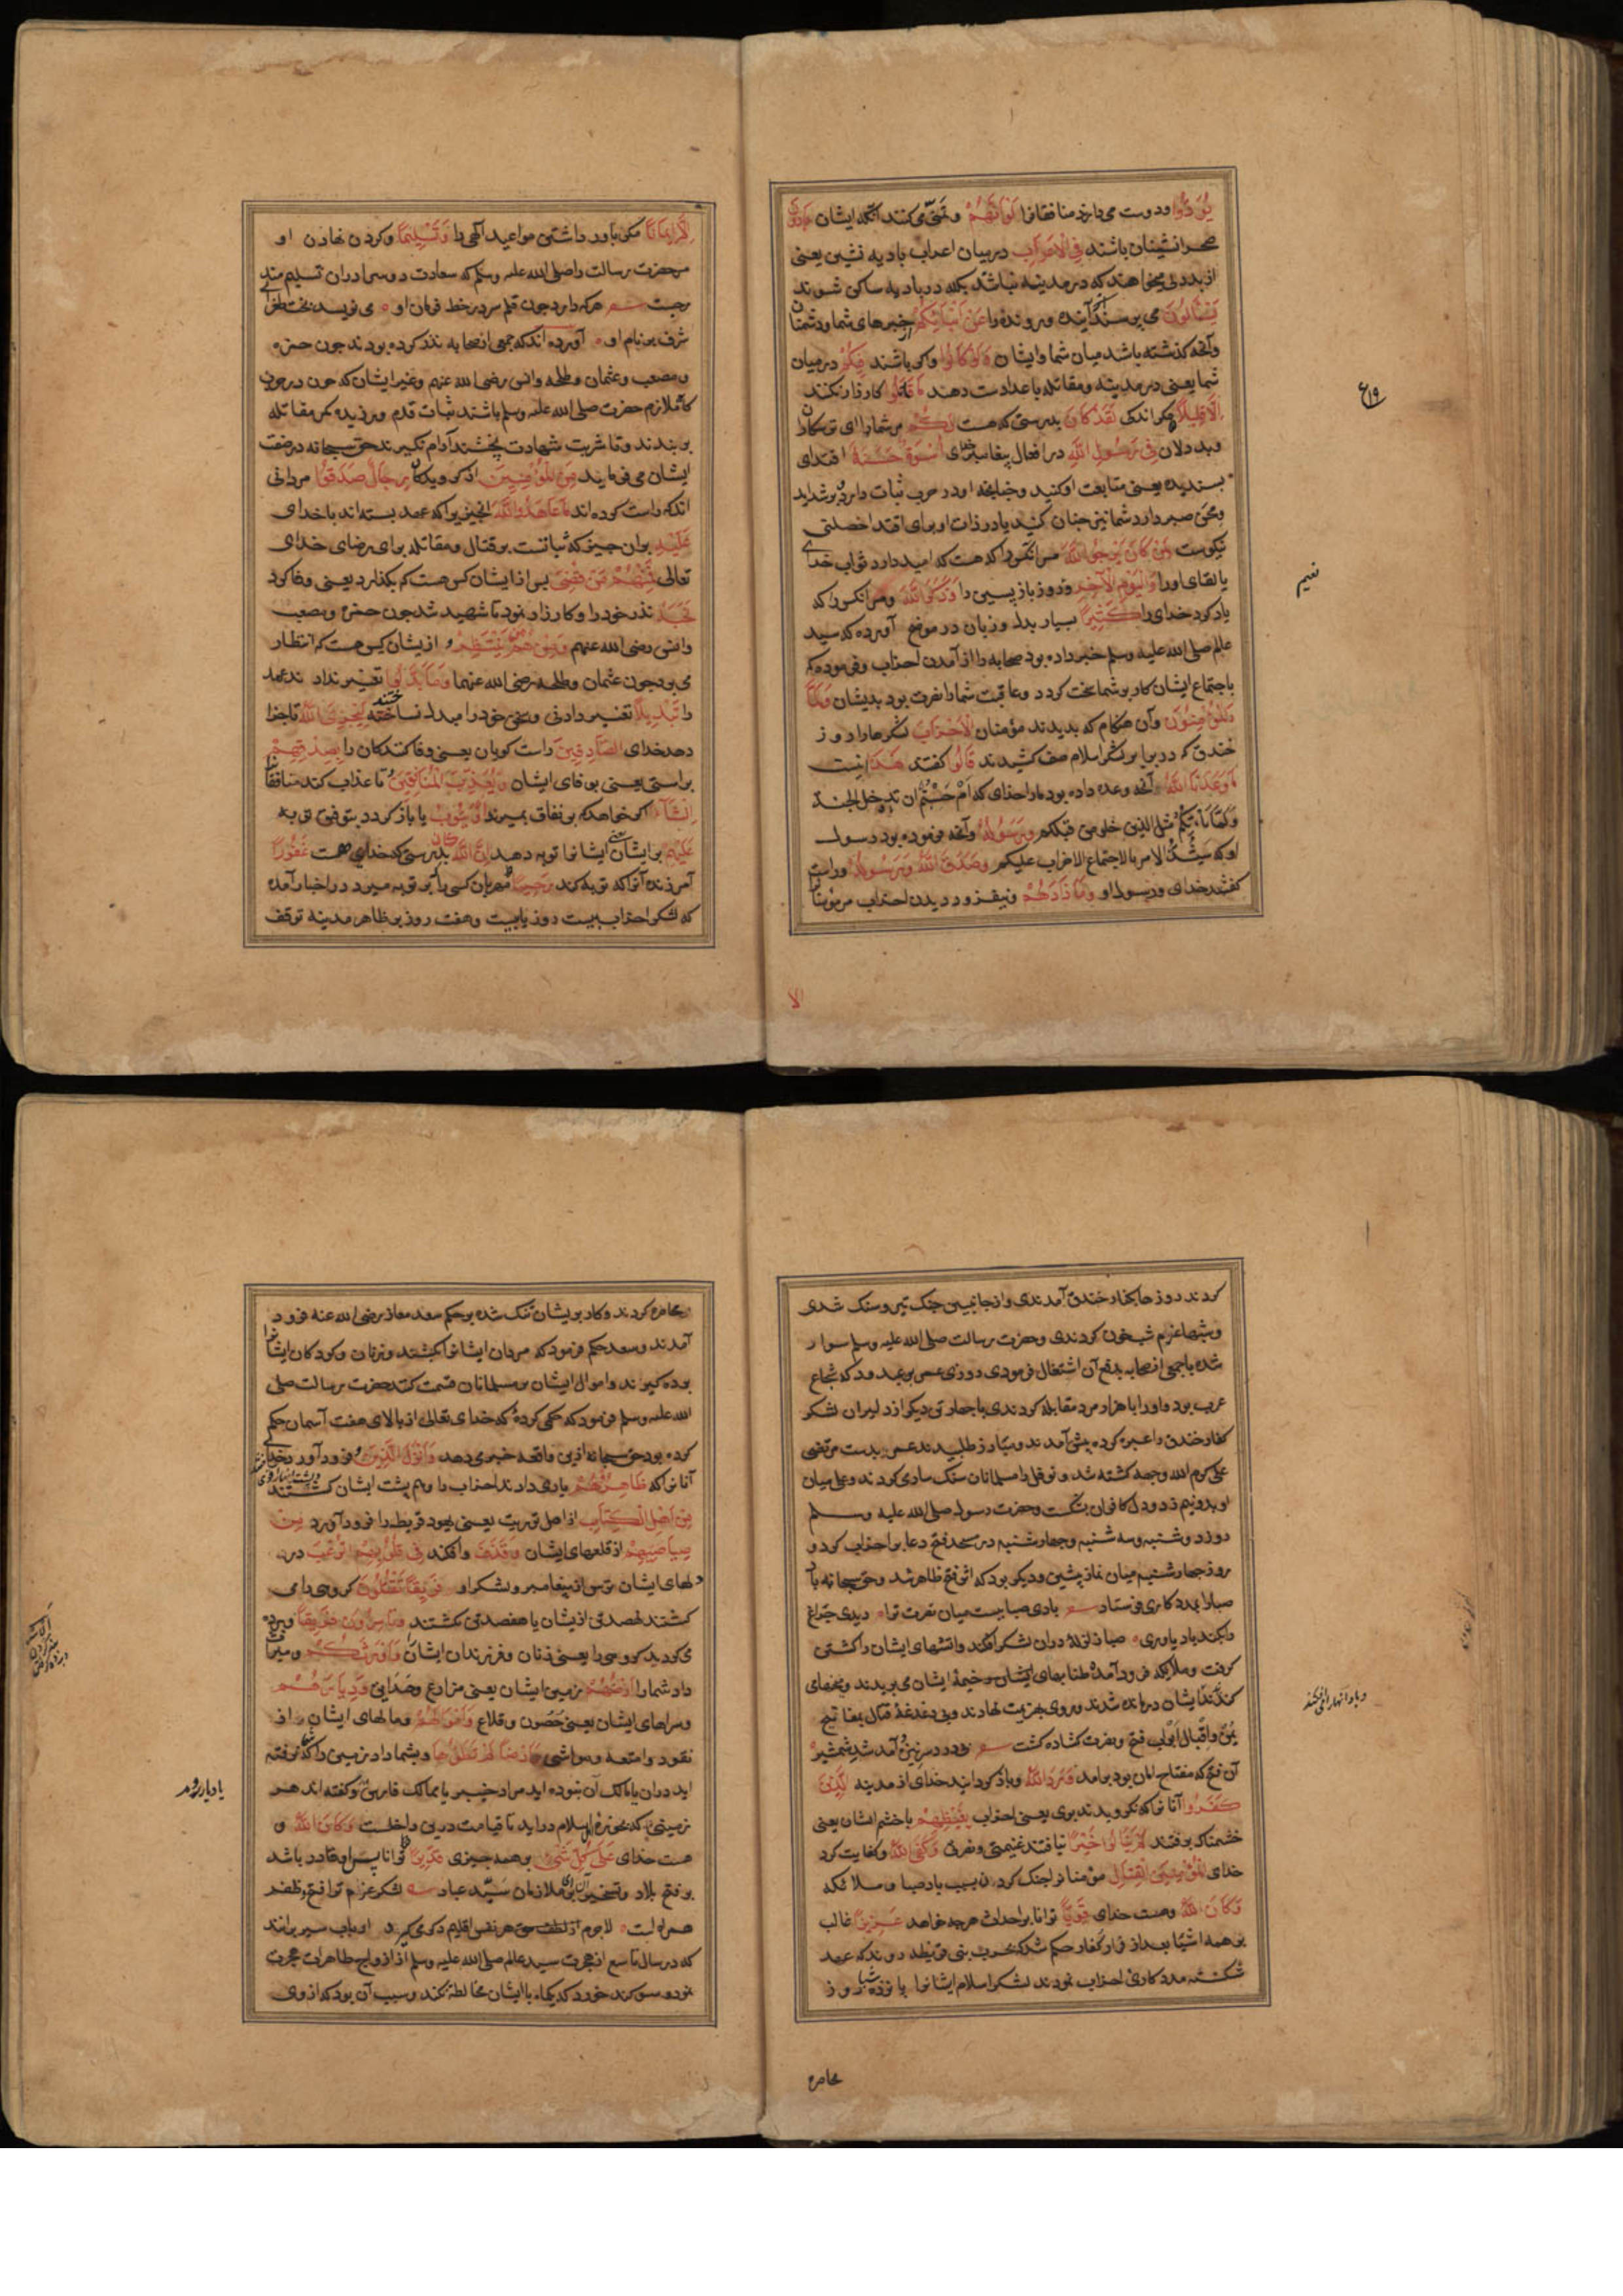 یَوَدُّوا دوست می دارند منافقانرا لَوْ اَنَّهُمْ وتمنّی می کنند آنکه ایشان بَادُونَ
صحرانشینان باشند فِی الْاَعْرَابِ درمیان اعراب بادیه نشین یعنی
از بددلی میخواهند که در مدینه نباشند بلکه در بادیه ساکن شوند
یَسْأَلُونَ می پرسند از آینده ورونده را عَنْ اَنْبَائِکُمْ از خبرهای شما ودشمنان
وآنچه گذشته باشد میان شما وایشان وَلَوْ کَانُوا واگر باشند فِیکُمْ درمیان
شما یعنی در مدینه ومقاتله با اعدا دست دهد مَا قَاتَلُوا کارزار نکنند
اِلَّا قَلِیلًا مگر اندکی لَقَدْ کَانَ بدرستی که هست لَکُمْ مر شمارا ای ترسکاران
وبددلان فِی رَسُولِ اللّٰهِ در افعال پیغامبر خدای اُسْوَةٌ حَسَنَةٌ اقتدای
پسندیده یعنی متابعت او کنید وچنانچه او در حرب ثبات دارد وبر شداید
ومحن صبر دارد شما نیز چنان کنید یا در ذات او برای اقتدا خصلتی
نیکوست لِمَنْ کَانَ یَرْجُو اللّٰهَ مر آنکس را که هست که امید دارد ثواب خدای
یا لقای اورا وَالْیَوْمَ الْآخِرَ وروز بازپسین را وَذَکَرَ اللّٰهَ ومر آنکس را که
یاد کرد خدای را کَثِیرًا بسیار بدل وزبان در موضح آورده که سید
عالم صلی الله علیه وسلم خبر داده بود صحابه را از آمدن احزاب وفرموده که
باجتماع ایشان کار بر شما سخت گردد وعاقبت شمارا نصرت بود بدیشان وَلَمَّا
رَأَی الْمُؤْمِنُونَ وآن هنگام که بدیدند مؤمنان الْاَحْزَابَ لشکرهارا روز
خندق که در برابر لشکر اسلام صف کشیدند قَالُوا گفتند هٰذَا اینست
مَا وَعَدَنَا اللّٰهُ آنچه وعده داده بود مارا خدای که اَمْ حَسِبْتُمْ ان تدخل الجنة
وَلَمَّا یَأْتِکُمْ مثل الذین خلوا من قبلکم وَرَسُولُهُ وآنچه فرموده بود رسول
او که سَیَشْتَدُّ الامر بالاجتماع الاحزاب علیکم وَصَدَقَ اللّٰهُ وَرَسُولُهُ وراست
گفتند خدای ورسول او وَمَا زَادَهُمْ ونیفزود دیدن احزاب مر مؤمنانرا
الا
۶۱۹
اِلَّا اِیمَانًا مگر باور داشتن مواعید الهی را وَتَسْلِیمًا وگردن نهادن او
مر حضرت رسالت را صلی الله علیه وسلم که سعادت دو سرا در آن تسلیم مندرجست
هرکه دارد چون قلم سر در خط فرمان او می نویسد بخت طغرای
شرف بر نام او آورده اند که جمعی از صحابه نذر کرده بودند چون حمزه
ومصعب وعثمان وطلحه وانس رضی الله عنهم وغیر ایشان که چون در حرب
ملازم حضرت صلی الله علیه وسلم باشند ثبات قدم ورزیده کمر مقاتله
بر بندند وتا شربت شهادت نچشند آرام نگیرند حق سبحانه در صفت
ایشان می فرماید مِنَ الْمُؤْمِنِینَ از گرویدگان رِجَالٌ صَدَقُوا مردانی
اند که راست کرده اند مَا عَاهَدُوا اللّٰهَ آنچیزیرا که عهد بسته اند با خدای
عَلَیْهِ بران چیز که ثباتست بر قتال ومقاتله برای رضای خدای
تعالی فَمِنْهُمْ مَنْ قَضٰی پس از ایشان کس هست که بگذارد یعنی وفا کرد
نَحْبَهُ نذر خودرا وکارزار نمود تا شهید شد چون حمزه ومصعب
وانس رضی الله عنهم وَمِنْهُمْ مَنْ یَنْتَظِرُ و ازیشان کس هست که انتظار
می برد چون عثمان وطلحه رضی الله عنهما وَمَا بَدَّلُوا تغییر نداد ند عهد
را تَبْدِیلًا تغییر دادنی وسخن خودرا مبدل نساختند لِیَجْزِیَ اللّٰهُ تا جزا
دهد خدای الصَّادِقِینَ راست گویان یعنی وفا کنندگان را بِصِدْقِهِمْ
براستی یعنی بوفای ایشان وَیُعَذِّبَ الْمُنَافِقِینَ وتا عذاب کند منافقانرا
اِنْ شَاءَ اگر خواهد که بر نفاق بمیرند اَوْ یَتُوبَ یا باز گردد بتوفیق توبه
عَلَیْهِمْ بر ایشان یعنی ایشانرا توبه دهد اِنَّ اللّٰهَ کَانَ بدرستی که خدای هست غَفُورًا
آمرزنده آنرا که توبه کند رَحِیمًا مهربان کسی را که بر توبه میرد در اخبار آمده
که لشکر احزاب بیست روز یا بیست وهفت روز بر ظاهر مدینه توقف
کردند روزها بکنار خندق آمدندی واز جانبین جنگ تیر وسنگ شدی
وشبها عزم شبخون کردندی وحضرت رسالت صلی الله علیه وسلم سوار
شده با جمعی از صحابه بدفع آن اشتغال فرمودی روزی عمرو بن عبد ود که شجاع
عرب بود واورا با هزار مرد مقابله کردندی با چهار تن دیگر از دلیران لشکر
کفار خندق را عبره کرده پیش آمدند ومبارز طلبیدند عمرو بدست مرتضی
علی کرم الله وجهه کشته شد ونوفل را مسلمانان سنگ ساری کردند وعلی میان
او بدو نیم زد ودل کافران بشکست وحضرت رسول صلی الله علیه وسلم
روز دوشنبه وسه شنبه وچهارشنبه در مسجد فتح دعا بر احزاب کرد و
روز چهارشنبه میان نماز پیشین ودیگر بود که اثر فتح ظاهر شد وحق سبحانه باد
صبارا بمددکاری فرستاد بادی صباییست میان نصرت ترا دیدی چراغ
را کند باد یاوری صبا زلزله دران لشکر افکند وآتشهای ایشان را کشتن
گرفت وملائکه فرود آمده طنابهای خیمهٔ ایشان می بریدند ومیخهای
کندند ایشان درمانده شدند وروی بهزیمت نهادند وبی دغدغهٔ قتال بمفاتیح
یُمن واقبال ابواب فتح ونصرت گشاده گشت
آن فتح که مفتاح امان بود برآمد وَرَدَّ اللّٰهُ وباز گردانید خدای از مدینه الَّذِینَ
کَفَرُوا آنانرا که نگرویدند بوی یعنی احزاب بِغَیْظِهِمْ با خشم ایشان یعنی
خشمناک برفتند لَمْ یَنَالُوا خَیْرًا نیافتند غنیمتی ونصرتی وَکَفَی اللّٰهُ وکفایت کرد
خدای الْمُؤْمِنِینَ الْقِتَالَ مؤمنانرا جنگ کردن بسبب باد صبا وملائکه
وَکَانَ اللّٰهُ وهست خدای قَوِیًّا توانا بر احداث هرچه خواهد عَزِیزًا غالب
بر همه اشیا بعد از فرار کفار حکم شد که بحرب بنی قریظه روند که عهد
شکسته مددکاری احزاب نمودند لشکر اسلام ایشانرا پانزده شبا روز
محاصره
محاصره کردند وکار بریشان تنگ شده بر حکم سعد معاذ رضی الله عنه فرود
آمدند وسعد حکم فرمود که مردان ایشانرا بکشند وزنان وکودکان ایشانرا
برده گیرند واموال ایشان بر مسلمانان قسمت کنند حضرت رسالت صلی
الله علیه وسلم فرمود که حکمی کردهٔ که خدای تعالی از بالای هفت آسمان حکم
کرده بود حق سبحانه ازین واقعه خبر می دهد وَاَنْزَلَ الَّذِینَ وفرود آورد خدای
آنانرا که ظَاهَرُوهُمْ یاری دادند احزاب را وهم پشت ایشان گشتند
مِنْ اَهْلِ الْکِتَابِ از اهل توریت یعنی یهود قریظه را فرود آورد مِنْ
صَیَاصِیهِمْ از قلعهای ایشان وَقَذَفَ وافکند فِی قُلُوبِهِمُ الرُّعْبَ در
دلهای ایشان ترس از پیغامبر ولشکر او فَرِیقًا تَقْتُلُونَ گروهی را می
کشتند نهصد تن ازیشان یا هفصد تن بکشتند وَتَأْسِرُونَ فَرِیقًا وبرده
می کردید گروهی را یعنی زنان وفرزندان ایشان وَاَوْرَثَکُمْ ومیراث
داد شمارا اَرْضَهُمْ زمین ایشان یعنی مزارع وحدایق وَدِیَارَهُمْ
وسراهای ایشان یعنی حصون وقلاع وَاَمْوَالَهُمْ ومالهای ایشان از
نقود وامتعه ومواشی وَاَرْضًا لَمْ تَطَئُوهَا وبشما داد زمینی را که نرفته
اید دران یا مالک آن نبوده اید مراد خیبر یا ممالک فارس وگفته اند هر
زمینی که بحوزهٔ اسلام دراید تا قیامت درین داخلست وَکَانَ اللّٰهُ و
هست خدای عَلٰی کُلِّ شَیْءٍ بر همه چیزی قَدِیرًا توانا پس او قادر باشد
بر فتح بلاد وتسخیر آن برای ملازمان سیّد عباد لشکر عزم ترا فتح وظفر
همراه است لاجرم هر نفس اقلیم دگر می گیرد ارباب سیر برآنند
که در سال تاسع از هجرت سید عالم صلی الله علیه وسلم از ازواج طاهرات هجرت
نمود وسوگند خورد که یکماه با ایشان مخالطه نکند وسبب آن بود که از وی
یا دیار روم